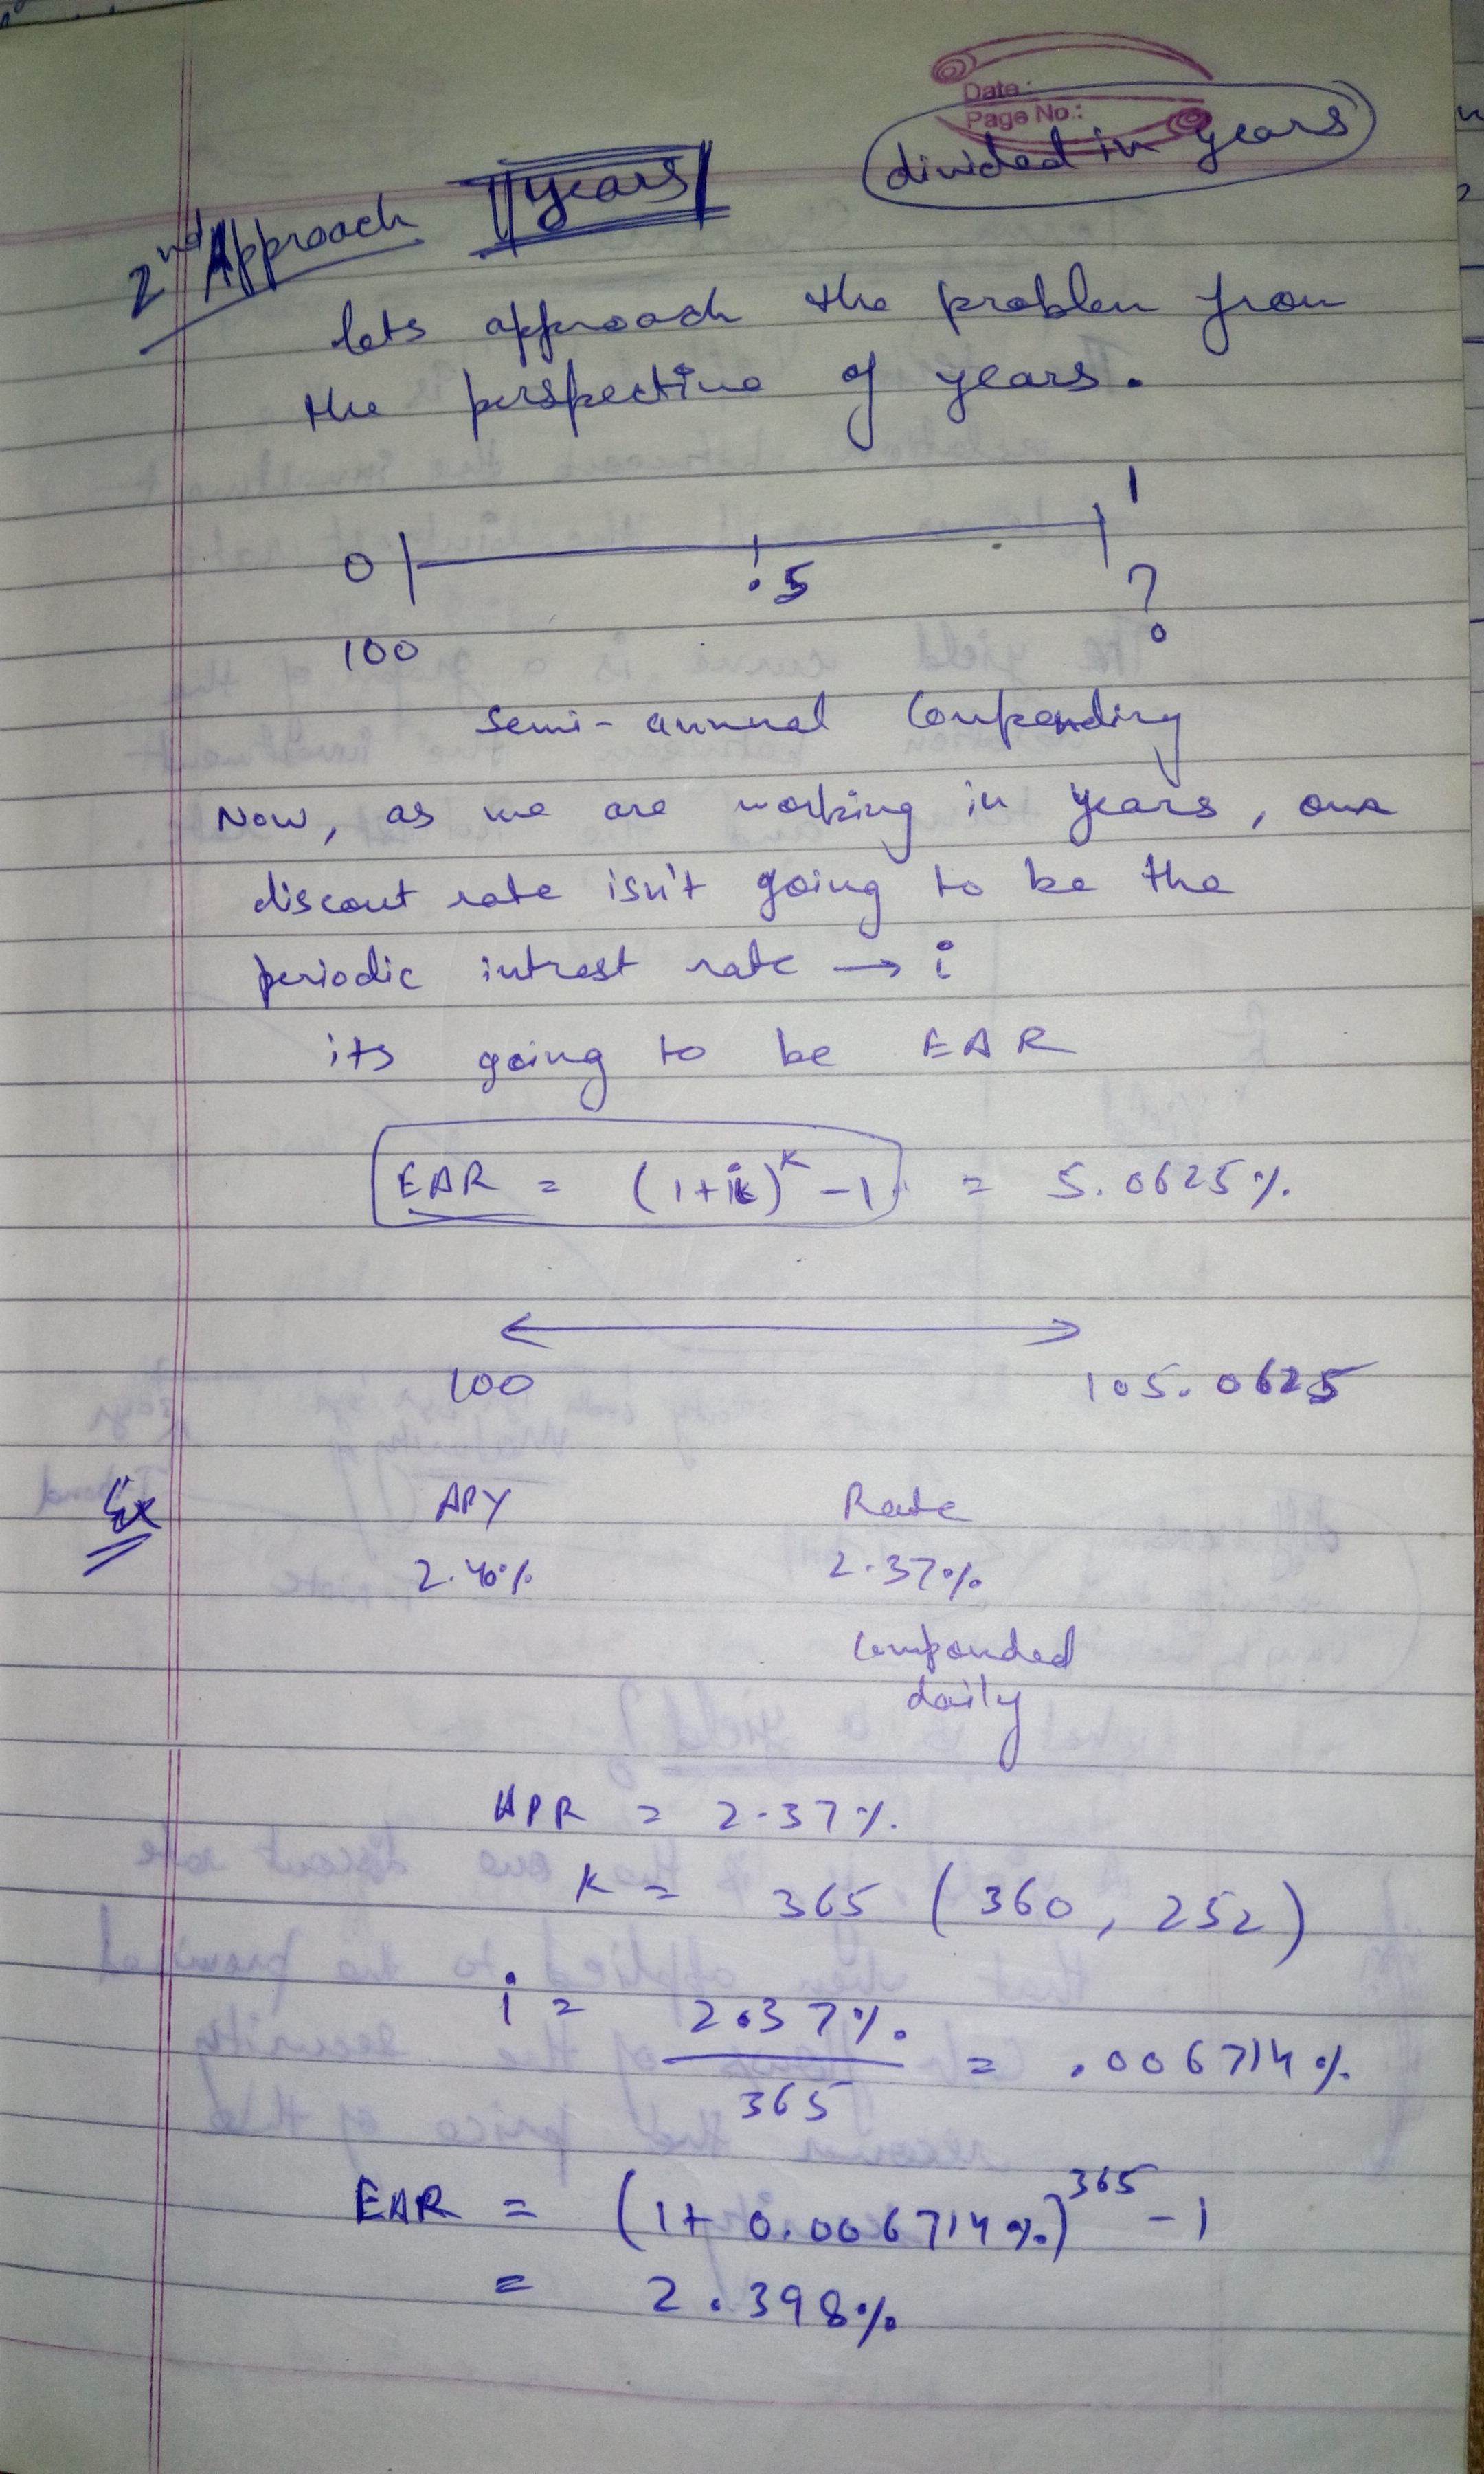 Date :
Page No.:
divided in years
2nd Approach years
lets approach the problem from
the perspective of years.
0 .5 1
100 ?
semi-annual Compounding
Now, as we are working in years, our
discount rate isn't going to be the
periodic intrest rate → i
its going to be EAR
EAR = (1+i)^K -1 = 5.0625%
100 105.0625
Ex APY Rate
2.40% 2.37%
compounded
daily
APR = 2.37%
K = 365 (360, 252)
i = 2.37% / 365 = .006714%
EAR = (1+ 0.006714%)^365 -1
= 2.398%